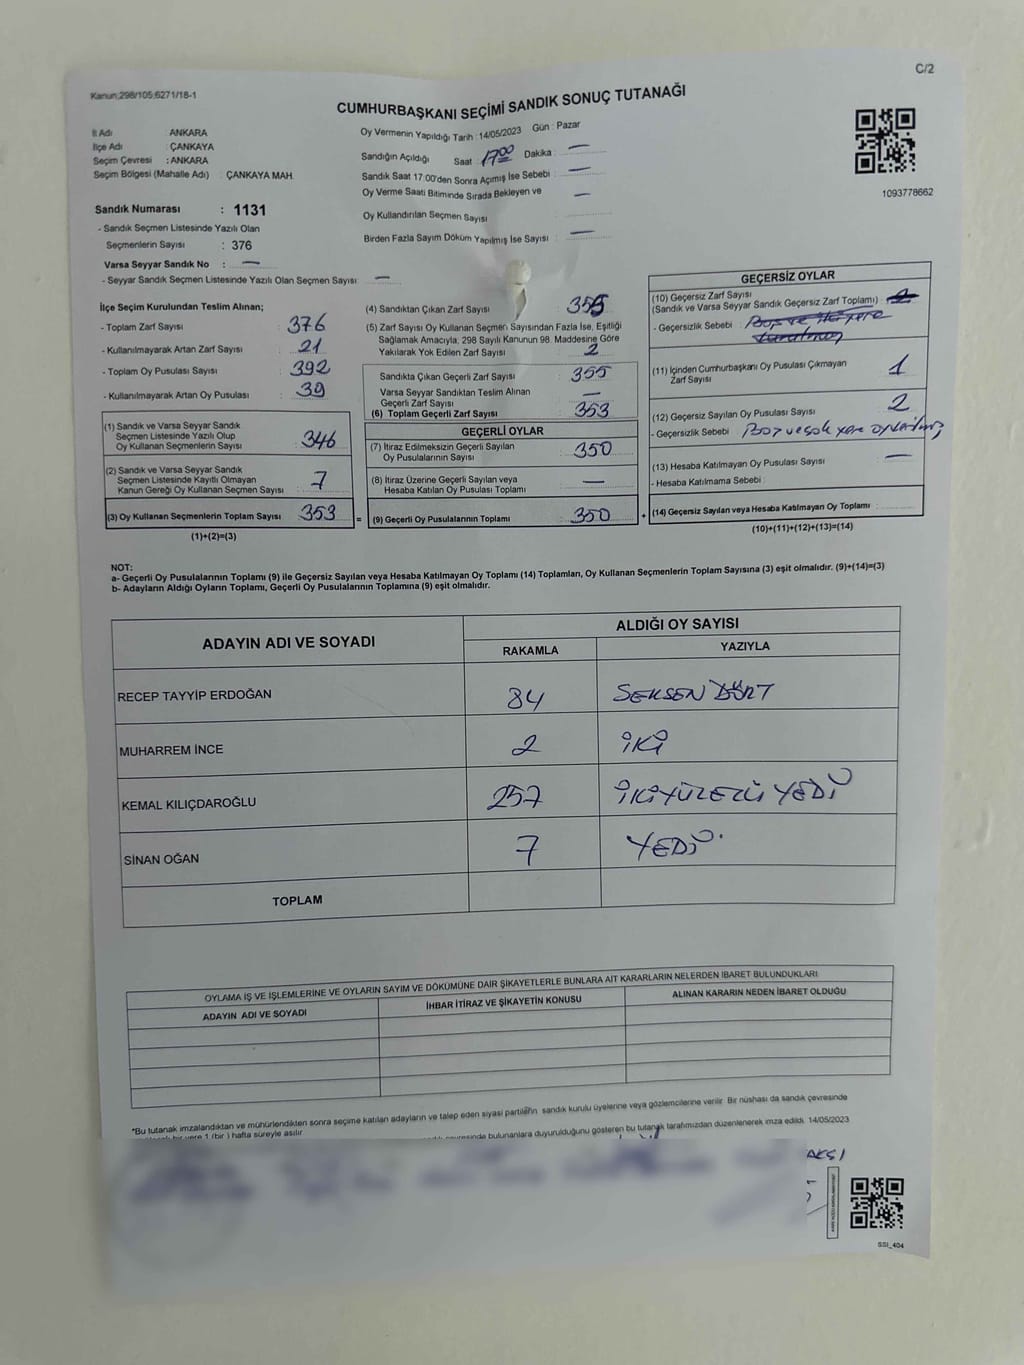 C/2
Kanun;298/105;6271/18-1
CUMHURBAŞKANI SEÇİMİ SANDIK SONUÇ TUTANAĞI
İl Adı ANKARA
İlçe Adı ÇANKAYA
Seçim Çevresi : ANKARA
Seçim Bölgesi (Mahalle Adı) : ÇANKAYA MAH.
Sandık Numarası : 1131
- Sandık Seçmen Listesinde Yazılı Olan
Seçmenlerin Sayısı : 376
Varsa Seyyar Sandık No : —
- Seyyar Sandık Seçmen Listesinde Yazılı Olan Seçmen Sayısı: —
Oy Vermenin Yapıldığı Tarih : 14/05/2023 Gün : Pazar
Sandığın Açıldığı Saat 17:00 Dakika : —
Sandık Saat 17:00'den Sonra Açımış İse Sebebi : —
Oy Verme Saati Bitiminde Sırada Bekleyen ve —
Oy Kullandırılan Seçmen Sayısı :
Birden Fazla Sayım Döküm Yapılmış İse Sayısı : —
1093778662
İlçe Seçim Kurulundan Teslim Alınan;
- Toplam Zarf Sayısı : 376
- Kullanılmayarak Artan Zarf Sayısı : 21
- Toplam Oy Pusulası Sayısı : 392
- Kullanılmayarak Artan Oy Pusulası : 39
(1) Sandık ve Varsa Seyyar Sandık
Seçmen Listesinde Yazılı Olup
Oy Kullanan Seçmenlerin Sayısı : 346
(2) Sandık ve Varsa Seyyar Sandık
Seçmen Listesinde Kayıtlı Olmayan
Kanun Gereği Oy Kullanan Seçmen Sayısı : 7
(3) Oy Kullanan Seçmenlerin Toplam Sayısı : 353
(1)+(2)=(3)
(4) Sandıktan Çıkan Zarf Sayısı : 355
(5) Zarf Sayısı Oy Kullanan Seçmen Sayısından Fazla İse, Eşitliği
Sağlamak Amacıyla; 298 Sayılı Kanunun 98. Maddesine Göre
Yakılarak Yok Edilen Zarf Sayısı : 2
Sandıkta Çıkan Geçerli Zarf Sayısı : 355
Varsa Seyyar Sandıktan Teslim Alınan
Geçerli Zarf Sayısı : —
(6) Toplam Geçerli Zarf Sayısı : 353
GEÇERLİ OYLAR
(7) İtiraz Edilmeksizin Geçerli Sayılan
Oy Pusulalarının Sayısı : 350
(8) İtiraz Üzerine Geçerli Sayılan veya
Hesaba Katılan Oy Pusulası Toplamı : —
= (9) Geçerli Oy Pusulalarının Toplamı : 350 +
GEÇERSİZ OYLAR
(10) Geçersiz Zarf Sayısı
(Sandık ve Varsa Seyyar Sandık Geçersiz Zarf Toplamı) : 2
- Geçersizlik Sebebi :
(11) İçinden Cumhurbaşkanı Oy Pusulası Çıkmayan
Zarf Sayısı 1
(12) Geçersiz Sayılan Oy Pusulası Sayısı : 2
- Geçersizlik Sebebi : Boş ve çok yere
(13) Hesaba Katılmayan Oy Pusulası Sayısı : —
- Hesaba Katılmama Sebebi :
(14) Geçersiz Sayılan veya Hesaba Katılmayan Oy Toplamı :
(10)+(11)+(12)+(13)=(14)
NOT:
a- Geçerli Oy Pusulalarının Toplamı (9) ile Geçersiz Sayılan veya Hesaba Katılmayan Oy Toplamı (14) Toplamları, Oy Kullanan Seçmenlerin Toplam Sayısına (3) eşit olmalıdır. (9)+(14)=(3)
b- Adayların Aldığı Oyların Toplamı, Geçerli Oy Pusulalarının Toplamına (9) eşit olmalıdır.
ADAYIN ADI VE SOYADI ALDIĞI OY SAYISI
RAKAMLA YAZIYLA
RECEP TAYYİP ERDOĞAN 84 SEKSEN DÖRT
MUHARREM İNCE 2 İKİ
KEMAL KILIÇDAROĞLU 257 İKİYÜZELLİ YEDİ
SİNAN OĞAN 7 YEDİ
TOPLAM
OYLAMA İŞ VE İŞLEMLERİNE VE OYLARIN SAYIM VE DÖKÜMÜNE DAİR ŞİKAYETLERLE BUNLARA AİT KARARLARIN NELERDEN İBARET BULUNDUKLARI
ADAYIN ADI VE SOYADI İHBAR İTİRAZ VE ŞİKAYETİN KONUSU ALINAN KARARIN NEDEN İBARET OLDUĞU
*Bu tutanak imzalandıktan ve mühürlendikten sonra seçime katılan adayların ve talep eden siyasi partilerin sandık kurulu üyelerine veya gözlemcilerine verilir. Bir nüshası da sandık çevresinde
1 (bir ) hafta süreyle asılır. bulunanlara duyurulduğunu gösteren bu tutanak tarafımızdan düzenlenerek imza edildi. 14/05/2023
SSI_404